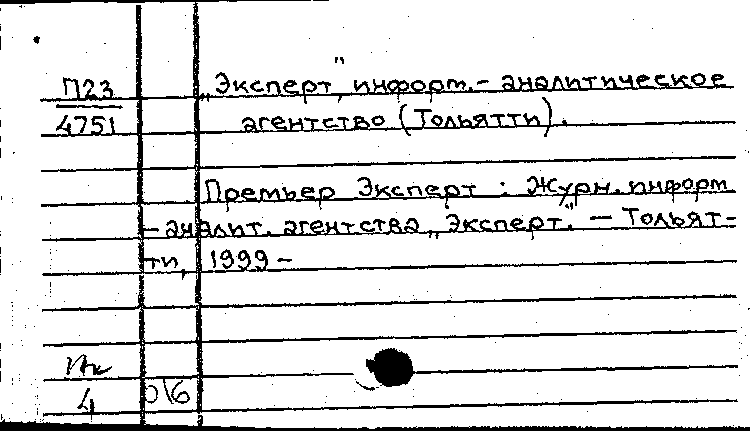 П23
4751
„Эксперт", информ.-аналитическое
агентство (Тольятти).
Премьер Эксперт : Журн. информ
-аналит. агентства „Эксперт." — Тольят-
ти, 1999 –
4